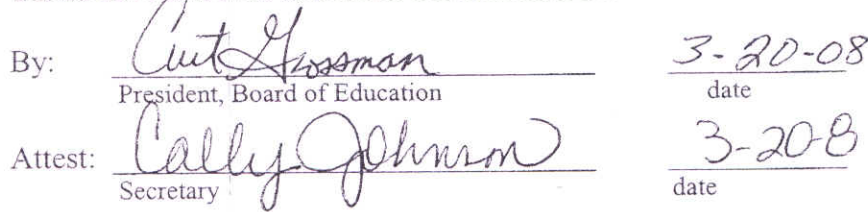 By: Curt Grossman 3-20-08
President, Board of Education date
Attest: Cally Johnson 3-20-8
Secretary date